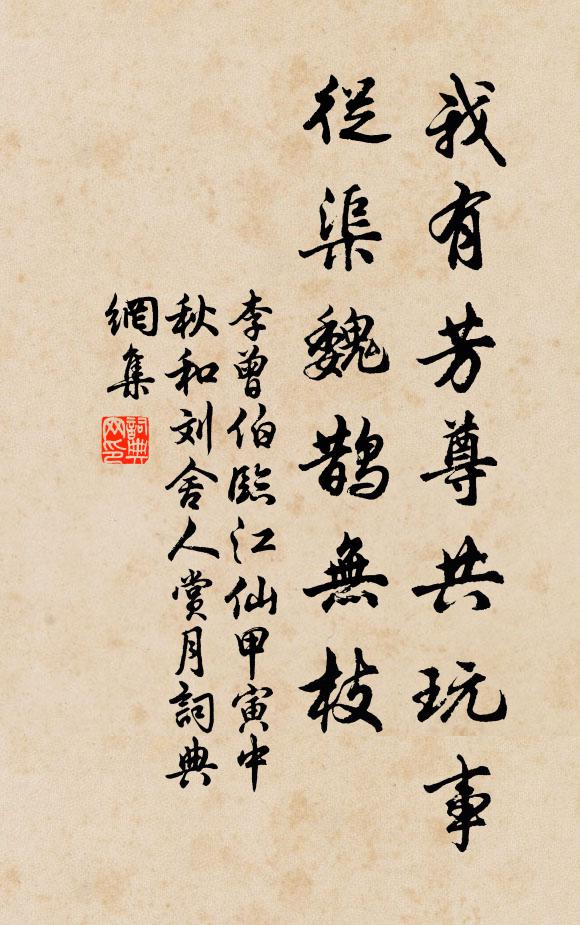 我有芳尊共玩事
從渠魏鵲無枝
李曾伯臨江仙甲寅中
秋和刘舍人賞月詞典
網集
詞典
网印